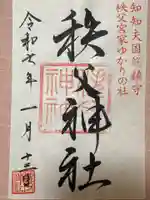 知知夫国総鎮守
秩父宮家ゆかりの社
秩父神社
令和七年一月十三日